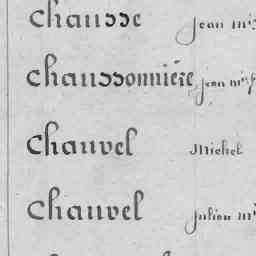 Chausse Jean m
Chaussonnière Jean m
Chauvel Michel
Chauvel Julien m